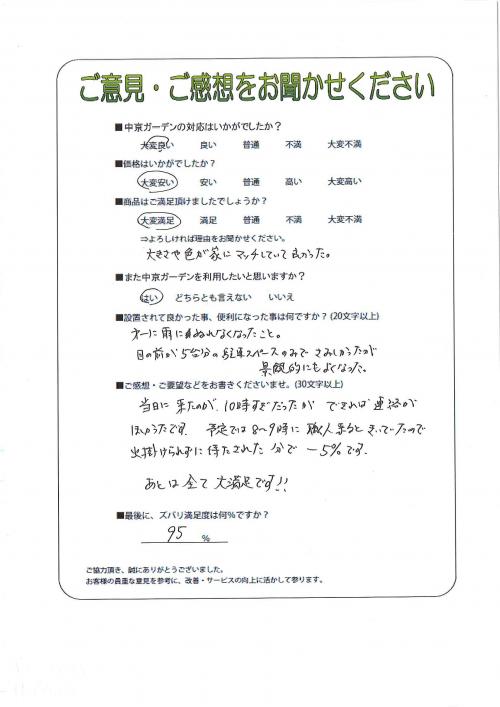 ご意見・ご感想をお聞かせください
■中京ガーデンの対応はいかがでしたか？
大変良い 良い 普通 不満 大変不満
■価格はいかがでしたか？
大変安い 安い 普通 高い 大変高い
■商品はご満足頂けましたでしょうか？
大変満足 満足 普通 不満 大変不満
⇒よろしければ理由をお聞かせください。
大きさや色が家にマッチしていて良かった。
■また中京ガーデンを利用したいと思いますか？
はい どちらとも言えない いいえ
■設置されて良かった事、便利になった事は何ですか？(20文字以上)
一に雨にぬれなくなったこと。
目の前が5台分の駐車スペースのみでさみしかったが
景観的にもよくなった。
■ご感想・ご要望などをお書きくださいませ。(30文字以上)
当日に来たのが、10時すぎだったができれば連絡が
ほしかったです。予定では8～9時に職人来るときいていたので
出掛けられずに待たされた分で－5%です。
あとは全て大満足です!!
■最後に、ズバリ満足度は何%ですか？
95 %
ご協力頂き、誠にありがとうございました。
お客様の貴重な意見を参考に、改善・サービスの向上に活かして参ります。